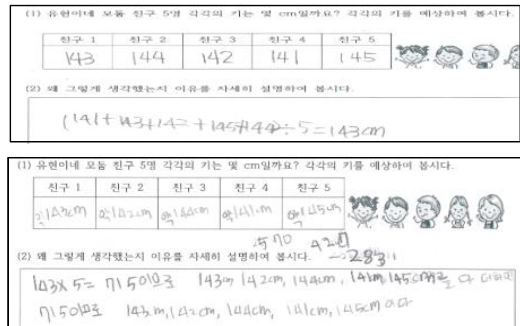 (1) 유현이네 모둠 친구 5명 각각의 키는 몇 cm일까요? 각각의 키를 예상하여 봅시다.
친구 1 친구 2 친구 3 친구 4 친구 5
143 144 142 141 145
(2) 왜 그렇게 생각했는지 이유를 자세히 설명하여 봅시다.
(141+143+142+145+144)÷5=143cm
(1) 유현이네 모둠 친구 5명 각각의 키는 몇 cm일까요? 각각의 키를 예상하여 봅시다.
친구 1 친구 2 친구 3 친구 4 친구 5
약143cm 약142cm 약144cm 약141cm 약145cm
570 428
(2) 왜 그렇게 생각했는지 이유를 자세히 설명하여 봅시다.
283
143×5=715이므로 143cm 142cm, 144cm, 141cm, 145cm 다 더하면
715이므로 143cm, 142cm, 144cm, 141cm, 145cm 이다